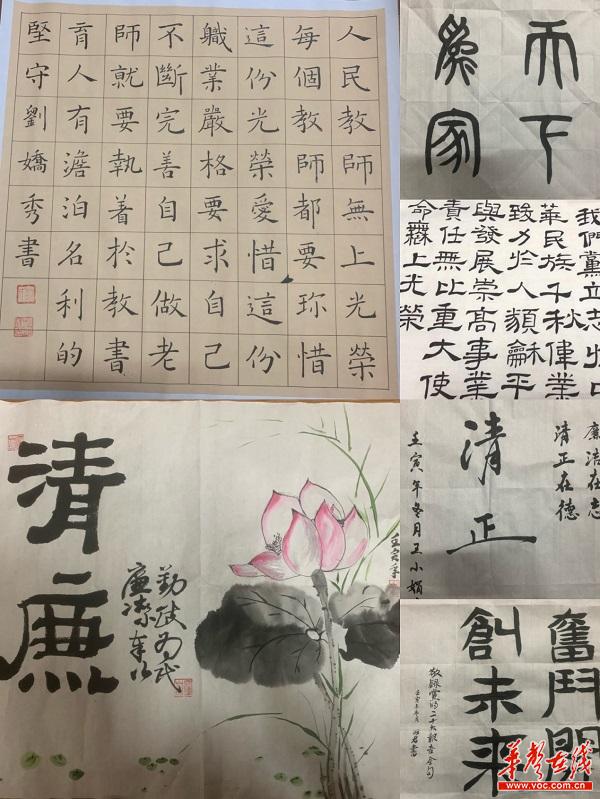 人民教師無上光榮
每個教師都要珍惜
這份光榮愛惜這份
職業嚴格要求自己
不斷完善自己做老
師就要執著於教書
育人有澹泊名利的
堅守劉嬌秀書
天下
為家
我們黨立志於中
華民族千秋偉業
致力於人類龢平
與發展崇高事業
責任無比重大使
命無上光榮
清廉
勤政为民
廉潔奉公
壬寅年
廉洁在志
清正在德
清正
壬寅年冬月王小娟
奮鬥開
創未來
敬錄黨的二十大報告金句
华声在线
www.voc.com.cn